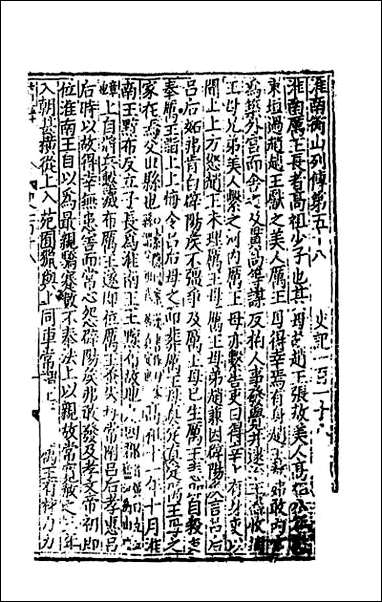 淮南衡山列傳第五十八　史記一百一十
淮南厲王長者高祖少子也其母故趙王張敖美人高祖八年
東垣過趙趙王獻之美人厲王母得幸焉有身趙王敖弗敢內宮
為築外宮而舍之及貫高等謀反柏人事發覺并逮治王盡收捕
王母兄弟美人繫之河內厲王母亦繫告吏曰得幸上有身吏以
聞上上方怒趙王未理厲王母厲王母弟趙兼因辟陽侯言呂后
呂后妬弗肯白辟陽侯不彊爭及厲王母已生厲王恚即自殺吏
奉厲王詣上上悔令呂后母之而葬厲王母真定真定厲王母之
家在焉父世縣也　十一年十月淮
南王黥布反立子長為淮南王王黥布故地
上自將兵擊滅布厲王遂即位厲王蚤失母常附呂后孝惠呂
后時以故得幸無患害而常心怨辟陽侯弗敢發及孝文帝初即
位淮南王自以為最親驕蹇數不奉法上以親故常寬赦之三年
入朝甚橫從上入苑囿獵與上同車常謂上　厲王有材力力